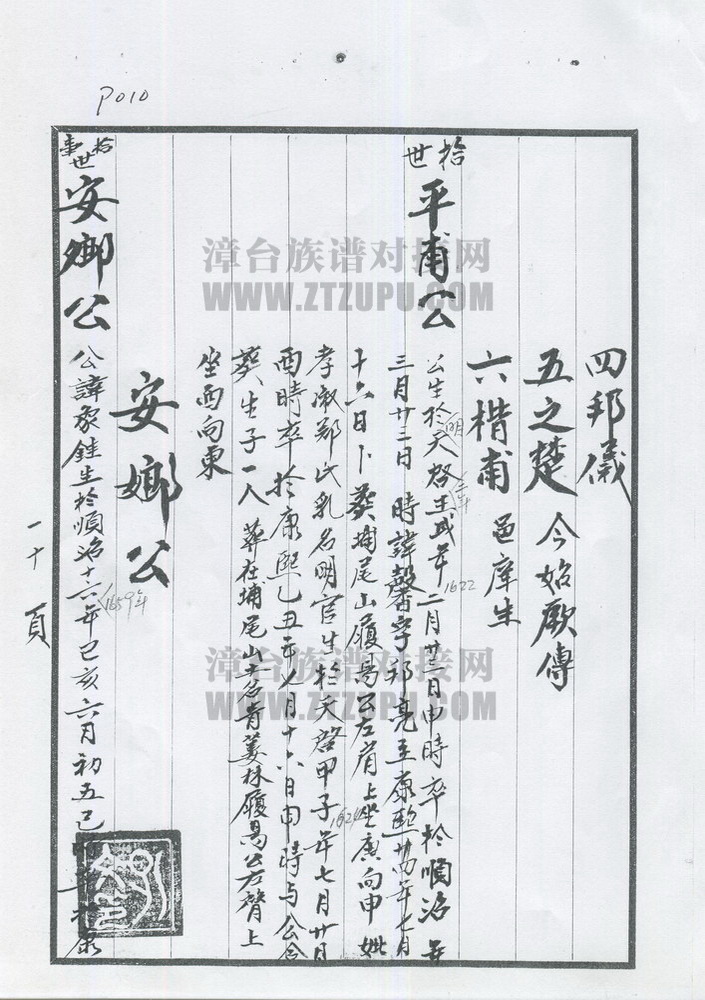 P010
四邦儀
五之楚 今始厥傳
六楷甫 邑庠生
拾世 平甫公
公生於天啓壬戌年二月廿三日申時卒於順治
明
三年
1622
三月廿三日 時諱馨字邦亮至康熙廿四年七月
十六日卜葬埔尾山履昜公左肩上坐庚向申 妣
孝淑鄭氏乳名明官生於天啓甲子年七月廿日
1624
酉時卒於康熙乙丑年七月十六日申時与公合
葬生子一人 葬在埔尾山土名青薑林履昜公右臂上
坐西向東
安鄉公
拾世 安鄉公 公諱象銈生於順治十六年己亥六月初五巳
1659年
一十頁
漳台族谱对接网
WWW.ZTZUPU.COM
漳台族谱对接网
WWW.ZTZUPU.COM